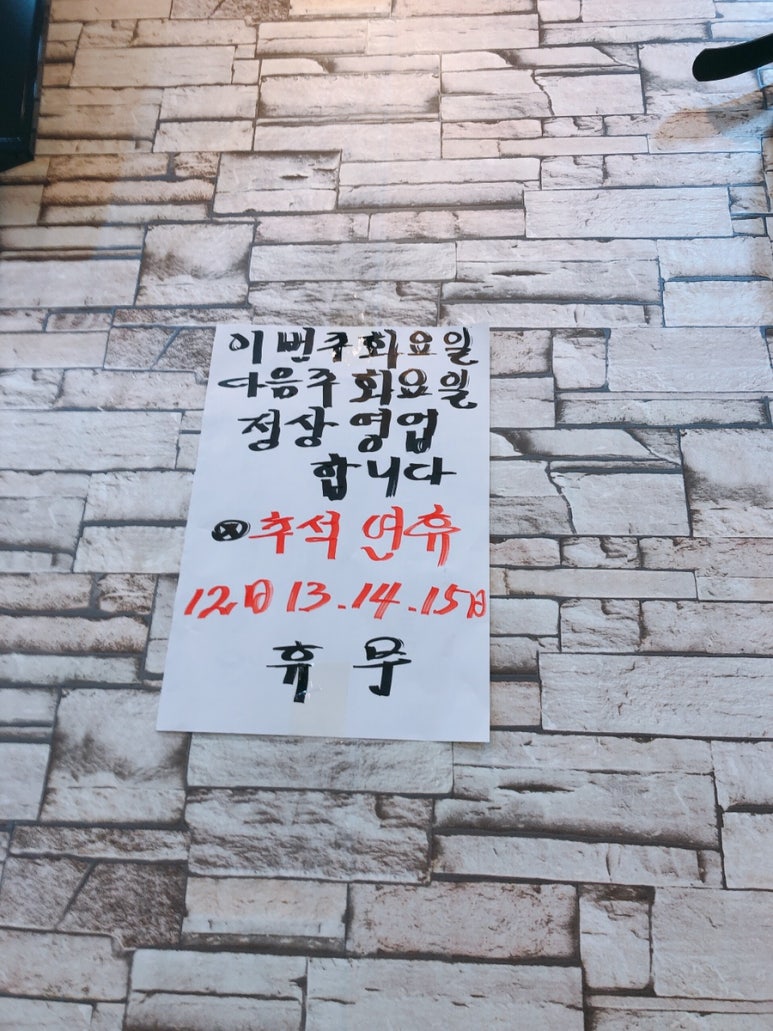 이번주 화요일
다음주 화요일
정상 영업
합니다
ⓧ추석 연휴
12일 13.14.15일
휴 무